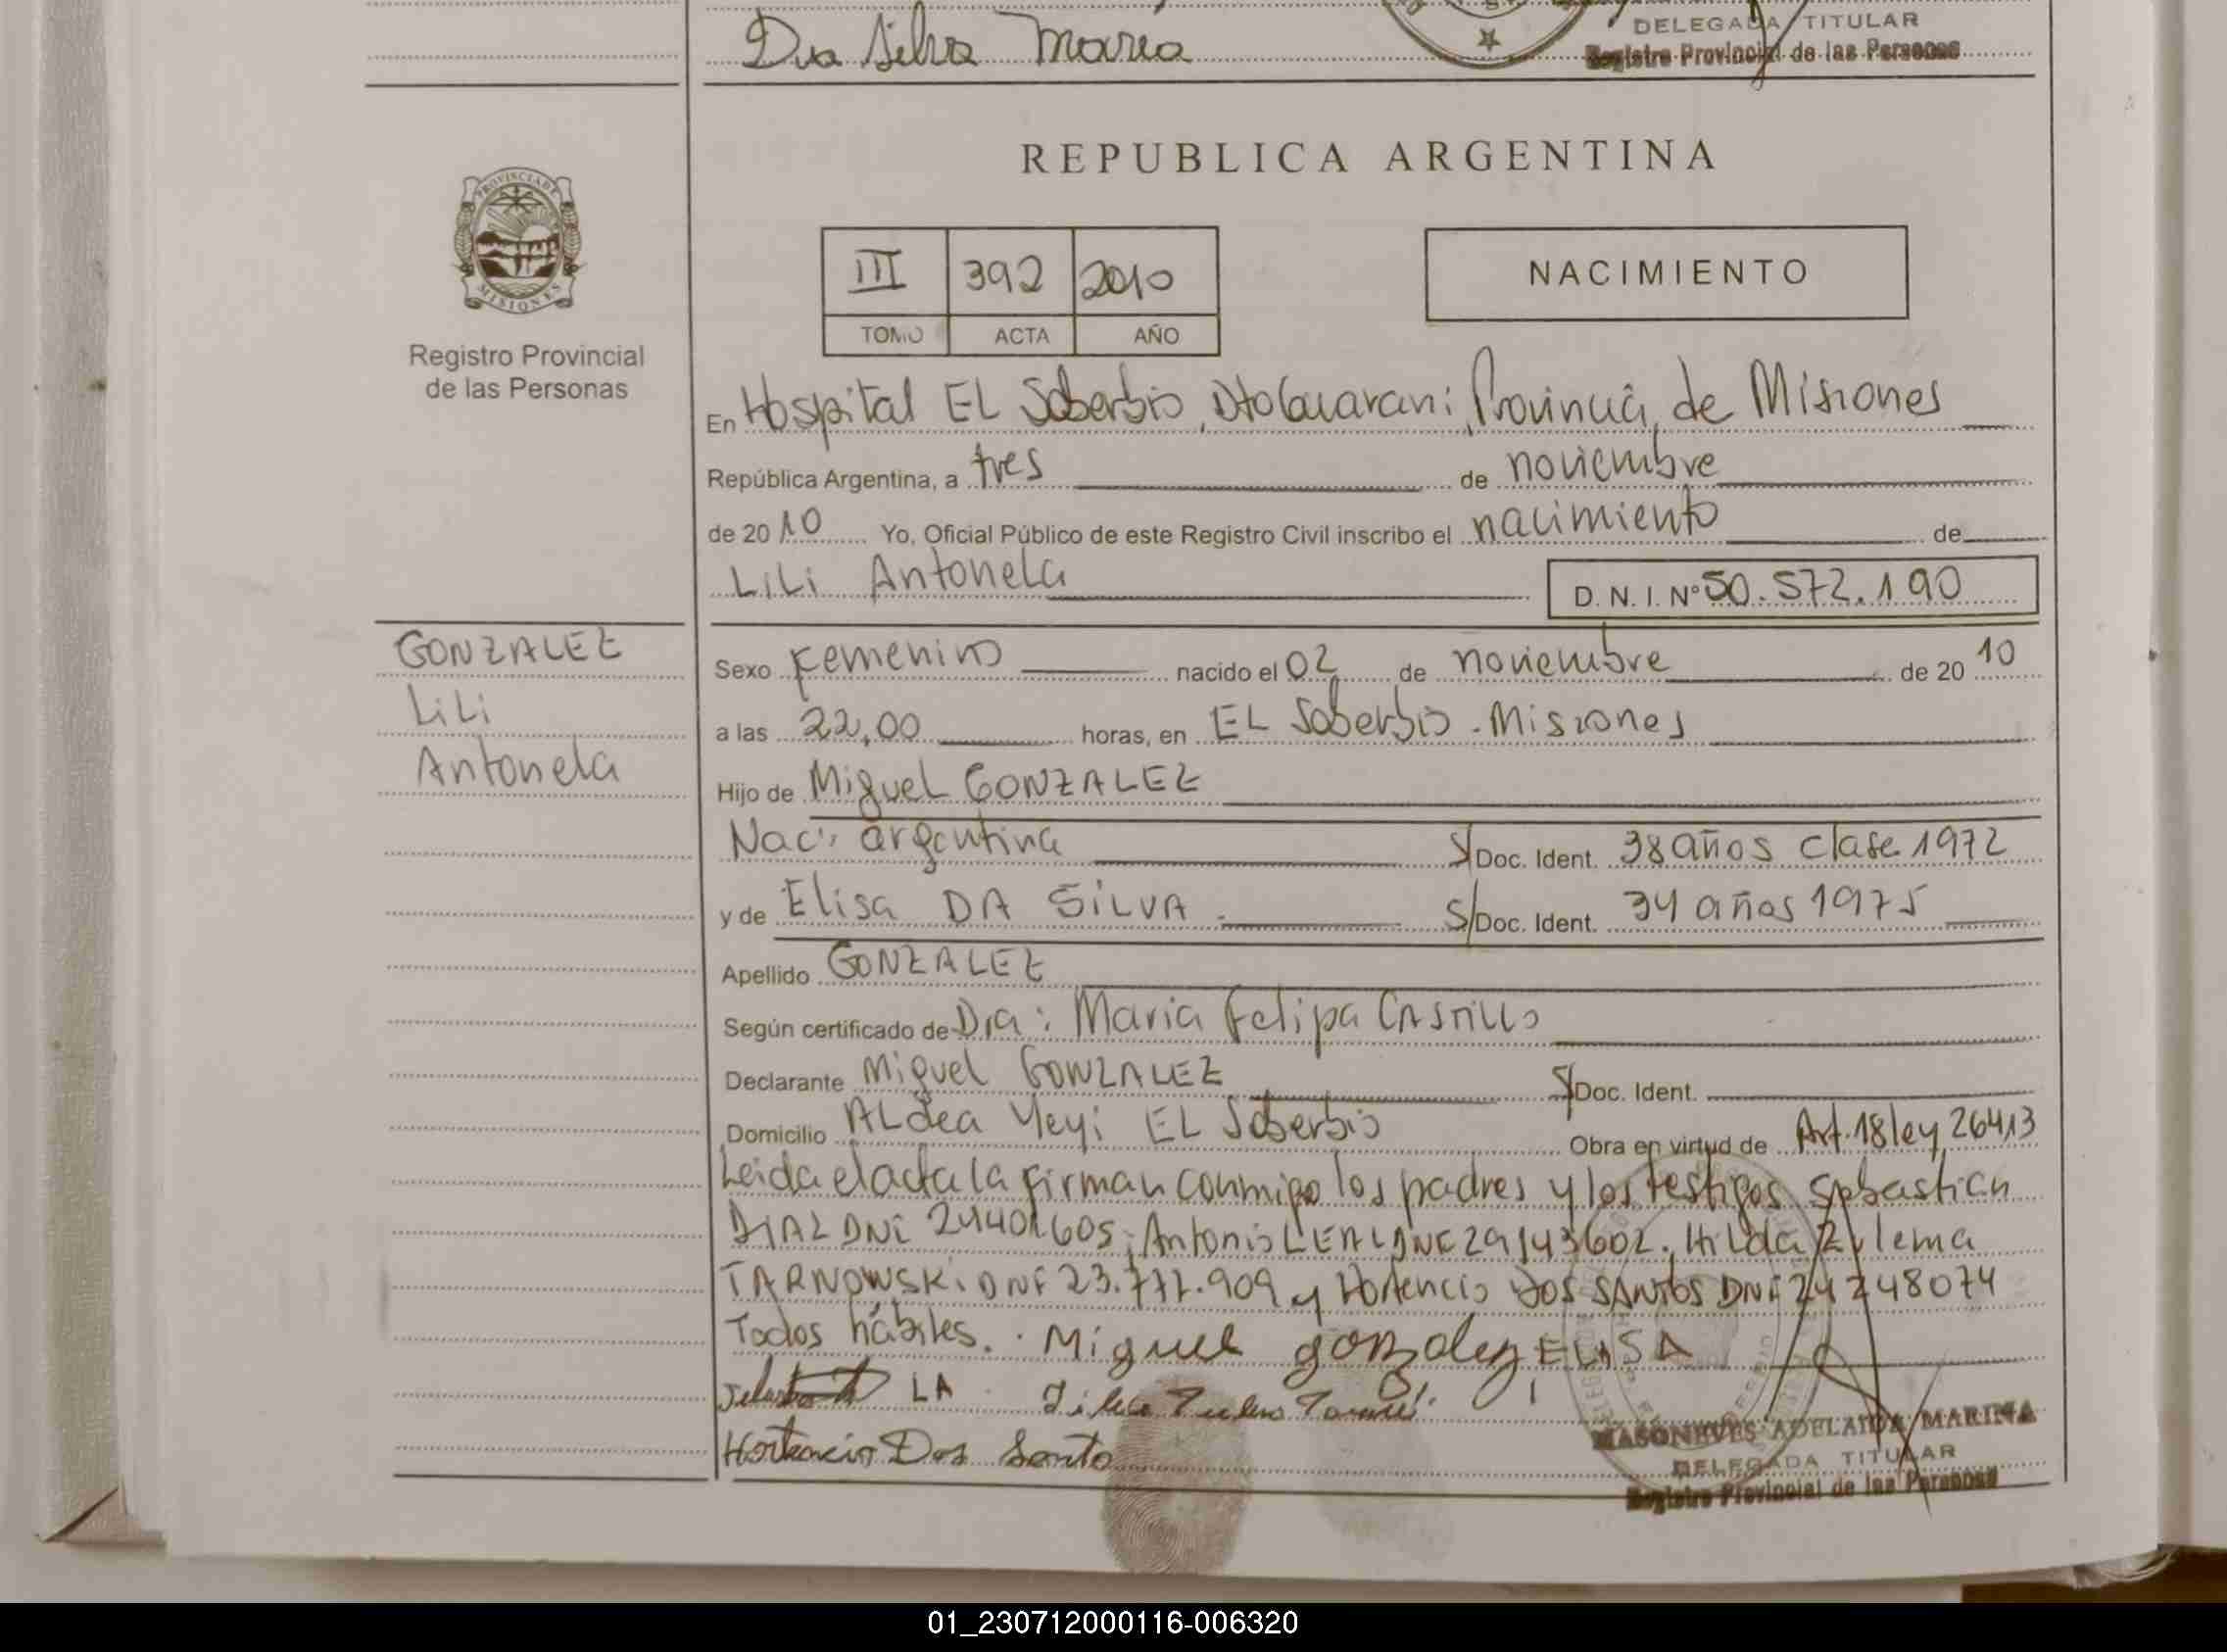 Da Silva Maria
DELEGADA TITULAR
Registro Provincial de las Personas
REPUBLICA ARGENTINA
PROVINCIA DE
MISIONES
Registro Provincial
de las Personas
III 392 2010
TOMO ACTA AÑO
NACIMIENTO
En Hospital EL Soberbio, Dto Guarani, Provincia de Misiones
República Argentina, a tres de noviembre
de 2010 Yo, Oficial Público de este Registro Civil inscribo el nacimiento de
LiLi Antonela D. N. I. Nº 50.572.190
GONZALEZ
LiLi
Antonela
Sexo Femenino nacido el 02 de noviembre de 20 10
a las 22,00 horas, en EL Soberbio - Misiones
Hijo de Miguel GONZALEZ
Nac: argentina S/Doc. Ident. 38 años clase 1972
y de Elisa DA SILVA S/Doc. Ident. 34 años 1975
Apellido GONZALEZ
Según certificado de Dra: Maria Felipa CASTILLO
Declarante Miguel GONZALEZ S/Doc. Ident.
Domicilio ALdea Yeyi EL Soberbio Obra en virtud de Art. 18 ley 26413
Leida el acta la firman conmigo los padres y los testigos Sebastian
DNI 24401605, Antonio LEAL DNI 29143602, Hilda Zulema
TARNOWSKi DNI 23.777.909 y Hortencio DOS SANTOS DNI 24248074
Todos hábiles. Miguel gonzalez ELISA
LA
MASONEVES ADELAIDA MARINA
Hortencio Dos Santo
DELEGADA TITULAR
Registro Provincial de las Personas
01_230712000116-006320